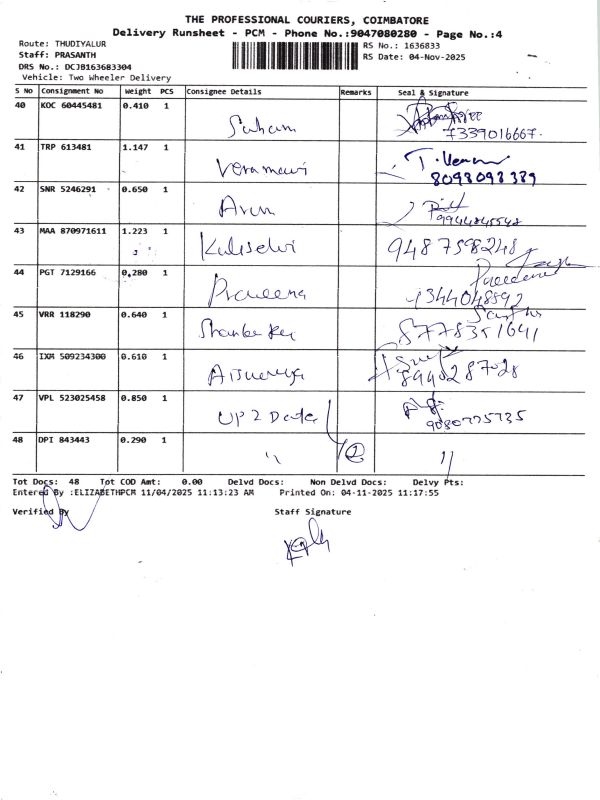 THE PROFESSIONAL COURIERS, COIMBATORE
Delivery Runsheet - PCM - Phone No.:9047080280 - Page No.:4
Route: THUDIYALUR
Staff: PRASANTH
DRS No.: DCJB163683304
Vehicle: Two Wheeler Delivery
RS No.: 1636833
RS Date: 04-Nov-2025
S No Consignment No Weight PCS Consignee Details Remarks Seal & Signature
40 KOC 60445481 0.410 1
7339016667.
41 TRP 613481 1.147 1
T.
8098098389
42 SNR 5246291 0.650 1
Arun
9944845548
43 MAA 870971611 1.223 1
Kaliselvi 9487598248
44 PGT 7129166 0.280 1
Praveena
45 VRR 118290 0.640 1
8778351641
46 IXM 509234300 0.610 1
8940287028
47 VPL 523025458 0.850 1
UP 2 Date 9080775735
48 DPI 843443 0.290 1
" 2 "
Tot Docs: 48 Tot COD Amt: 0.00 Delvd Docs: Non Delvd Docs: Delvy Pts:
Entered By :ELIZABETHPCM 11/04/2025 11:13:23 AM Printed On: 04-11-2025 11:17:55
Verified By Staff Signature